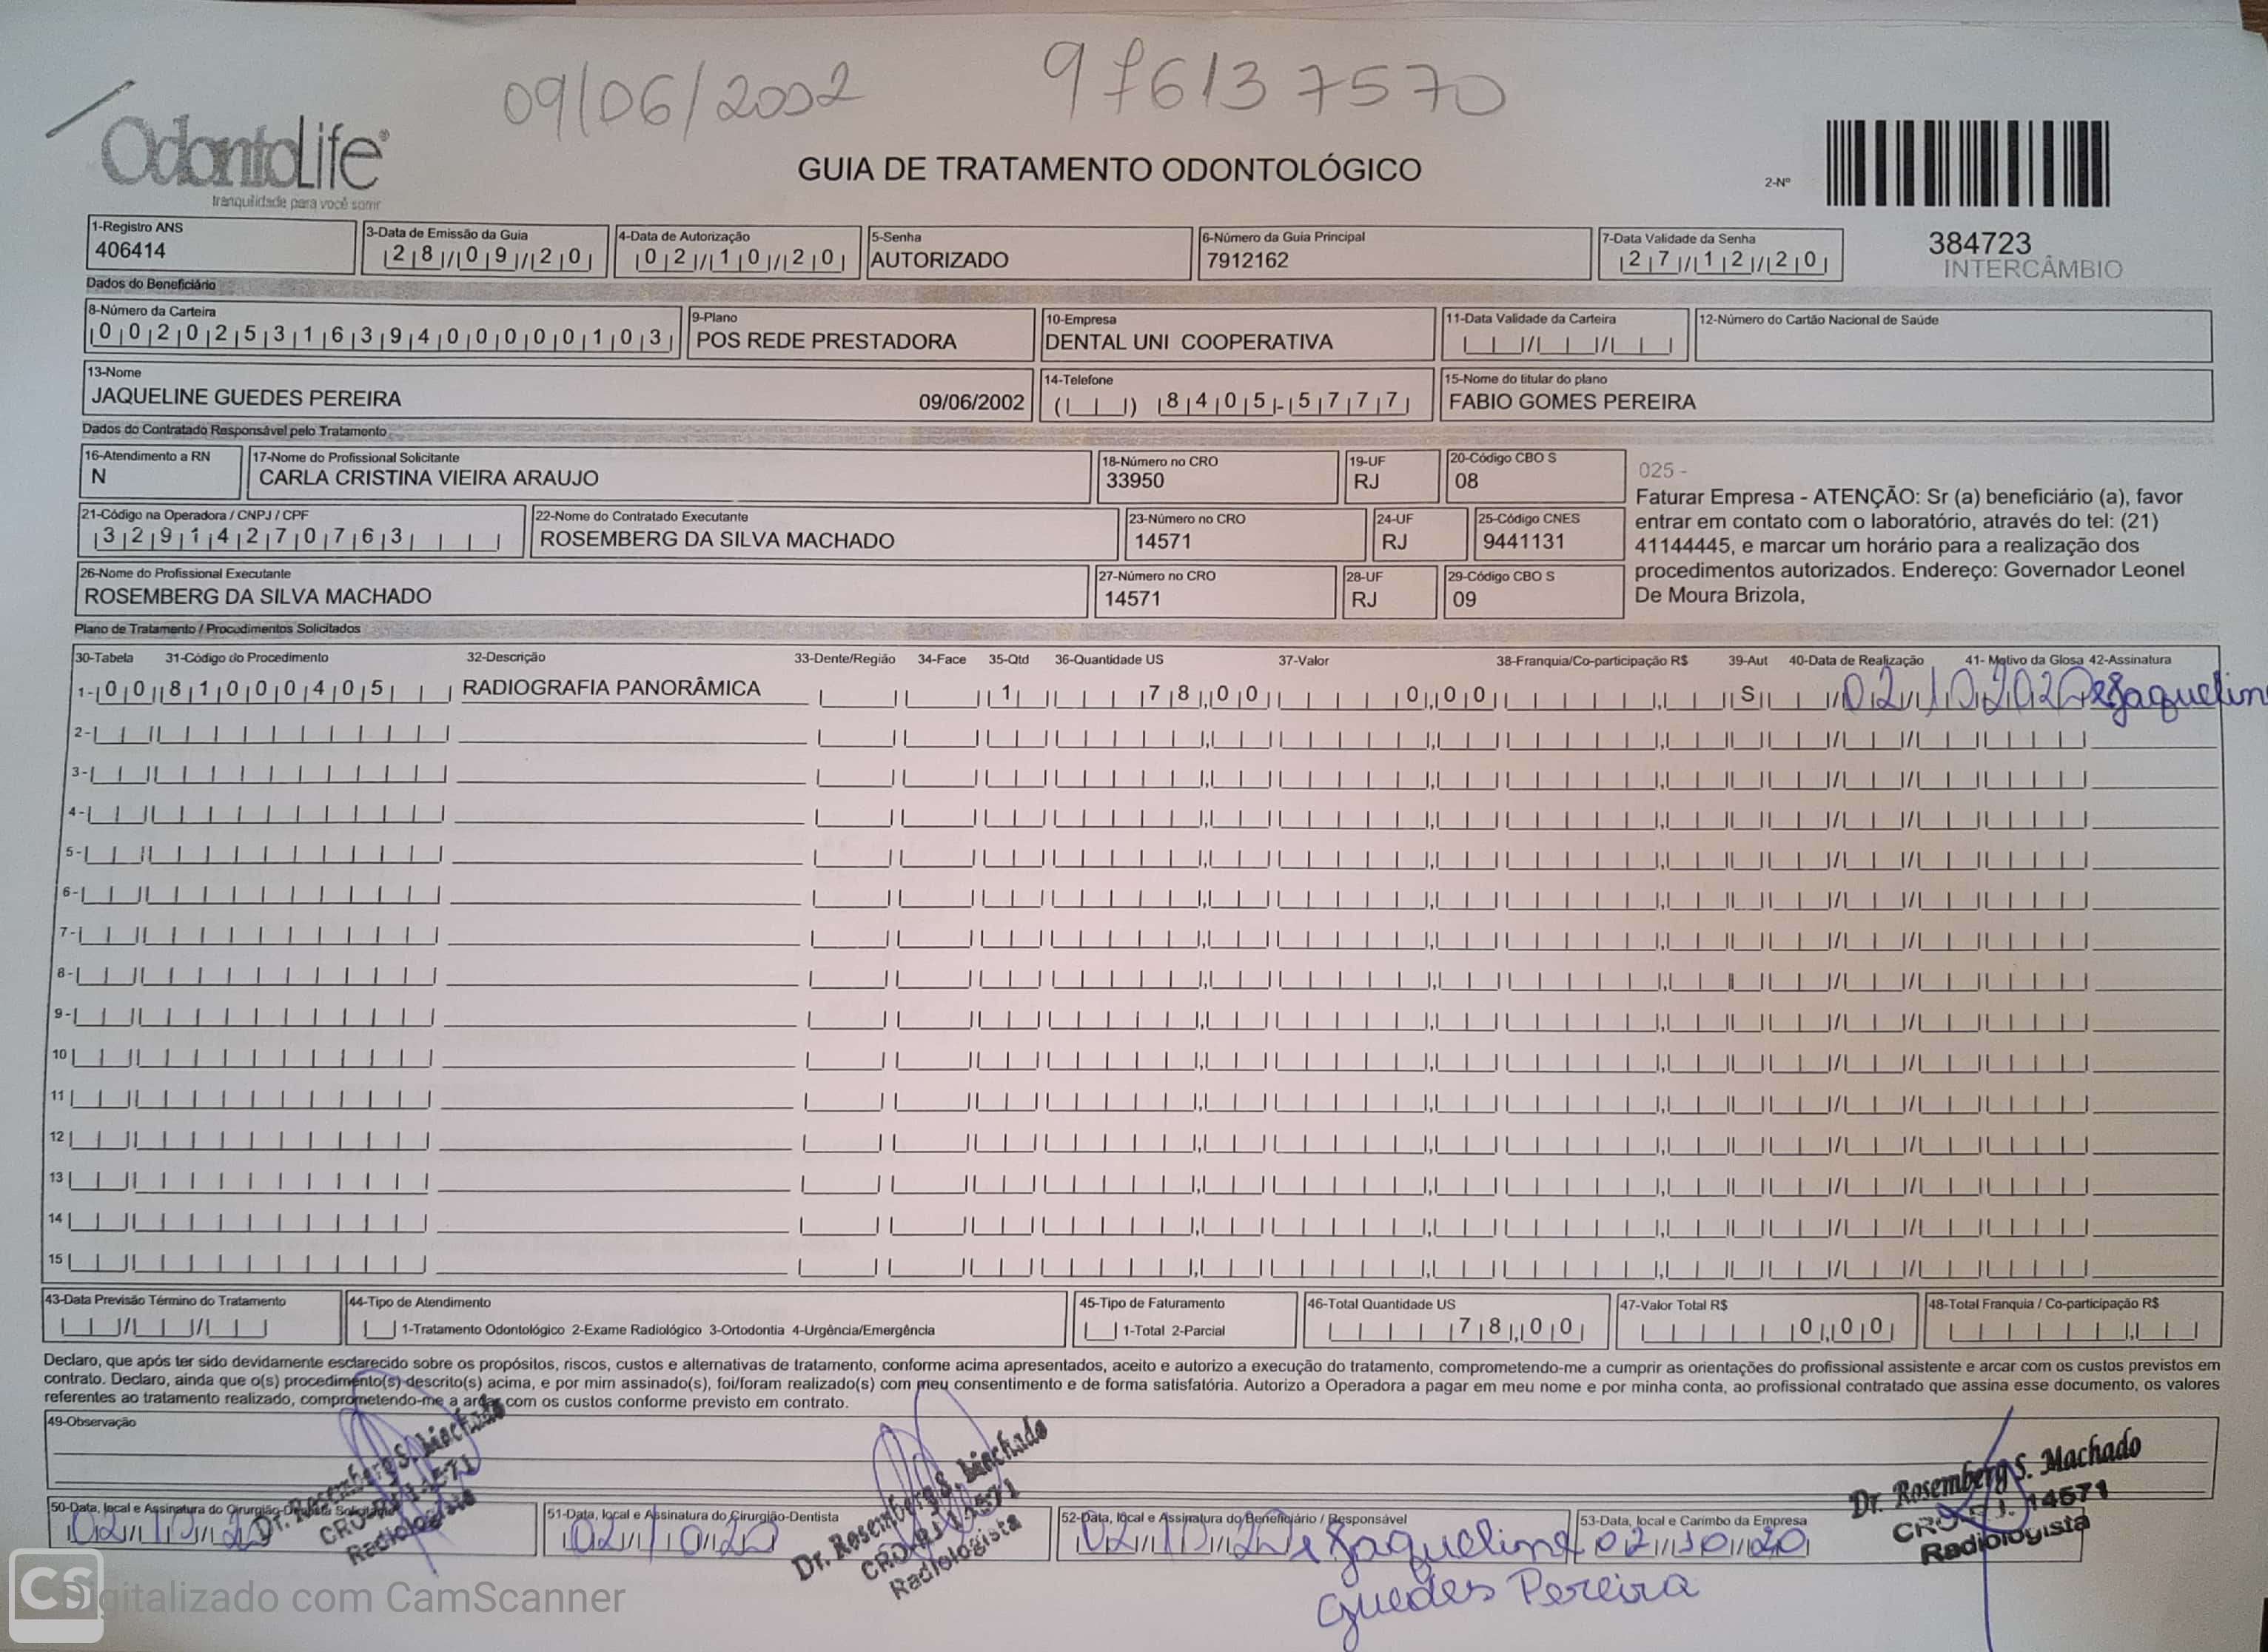 09/06/2002 976137570
OdontoLife®
tranquilidade para você sorrir
GUIA DE TRATAMENTO ODONTOLÓGICO
2-Nº
384723
INTERCÂMBIO
1-Registro ANS 3-Data de Emissão da Guia 4-Data de Autorização 5-Senha 6-Número da Guia Principal 7-Data Validade da Senha
406414 28/09/20 02/10/20 AUTORIZADO 7912162 27/12/20
Dados do Beneficiário
8-Número da Carteira 9-Plano 10-Empresa 11-Data Validade da Carteira 12-Número do Cartão Nacional de Saúde
00202531639400000103 POS REDE PRESTADORA DENTAL UNI COOPERATIVA
13-Nome 14-Telefone 15-Nome do titular do plano
JAQUELINE GUEDES PEREIRA 09/06/2002 ( ) 8405-5777 FABIO GOMES PEREIRA
Dados do Contratado Responsável pelo Tratamento
16-Atendimento a RN 17-Nome do Profissional Solicitante 18-Número no CRO 19-UF 20-Código CBO S
N CARLA CRISTINA VIEIRA ARAUJO 33950 RJ 08
21-Código na Operadora / CNPJ / CPF 22-Nome do Contratado Executante 23-Número no CRO 24-UF 25-Código CNES
32914270763 ROSEMBERG DA SILVA MACHADO 14571 RJ 9441131
26-Nome do Profissional Executante 27-Número no CRO 28-UF 29-Código CBO S
ROSEMBERG DA SILVA MACHADO 14571 RJ 09
025 -
Faturar Empresa - ATENÇÃO: Sr (a) beneficiário (a), favor
entrar em contato com o laboratório, através do tel: (21)
41144445, e marcar um horário para a realização dos
procedimentos autorizados. Endereço: Governador Leonel
De Moura Brizola,
Plano de Tratamento / Procedimentos Solicitados
30-Tabela 31-Código do Procedimento 32-Descrição 33-Dente/Região 34-Face 35-Qtd 36-Quantidade US 37-Valor 38-Franquia/Co-participação R$ 39-Aut 40-Data de Realização 41- Motivo da Glosa 42-Assinatura
1- 00 81000405 RADIOGRAFIA PANORÂMICA 1 78,00 0,00 S 02/10/2020 Jaqueline
2-
3-
4-
5-
6-
7-
8-
9-
10
11
12
13
14
15
43-Data Previsão Término do Tratamento 44-Tipo de Atendimento 45-Tipo de Faturamento 46-Total Quantidade US 47-Valor Total R$ 48-Total Franquia / Co-participação R$
1-Tratamento Odontológico 2-Exame Radiológico 3-Ortodontia 4-Urgência/Emergência 1-Total 2-Parcial 78,00 0,00
Declaro, que após ter sido devidamente esclarecido sobre os propósitos, riscos, custos e alternativas de tratamento, conforme acima apresentados, aceito e autorizo a execução do tratamento, comprometendo-me a cumprir as orientações do profissional assistente e arcar com os custos previstos em
contrato. Declaro, ainda que o(s) procedimento(s) descrito(s) acima, e por mim assinado(s), foi/foram realizado(s) com meu consentimento e de forma satisfatória. Autorizo a Operadora a pagar em meu nome e por minha conta, ao profissional contratado que assina esse documento, os valores
referentes ao tratamento realizado, comprometendo-me a arcar com os custos conforme previsto em contrato.
49-Observação
50-Data, local e Assinatura do Cirurgião-Dentista Solicitante 51-Data, local e Assinatura do Cirurgião-Dentista 52-Data, local e Assinatura do Beneficiário / Responsável 53-Data, local e Carimbo da Empresa
02/10/20 02/10/20 02/10/20 Jaqueline 02/10/20
Guedes Pereira
Dr. Rosemberg S. Machado
CRO-RJ 14571
Radiologista
Dr. Rosemberg S. Machado
CRO-RJ 14571
Radiologista
Dr. Rosemberg S. Machado
CRO-RJ. 14571
Radiologista
CS
Digitalizado com CamScanner